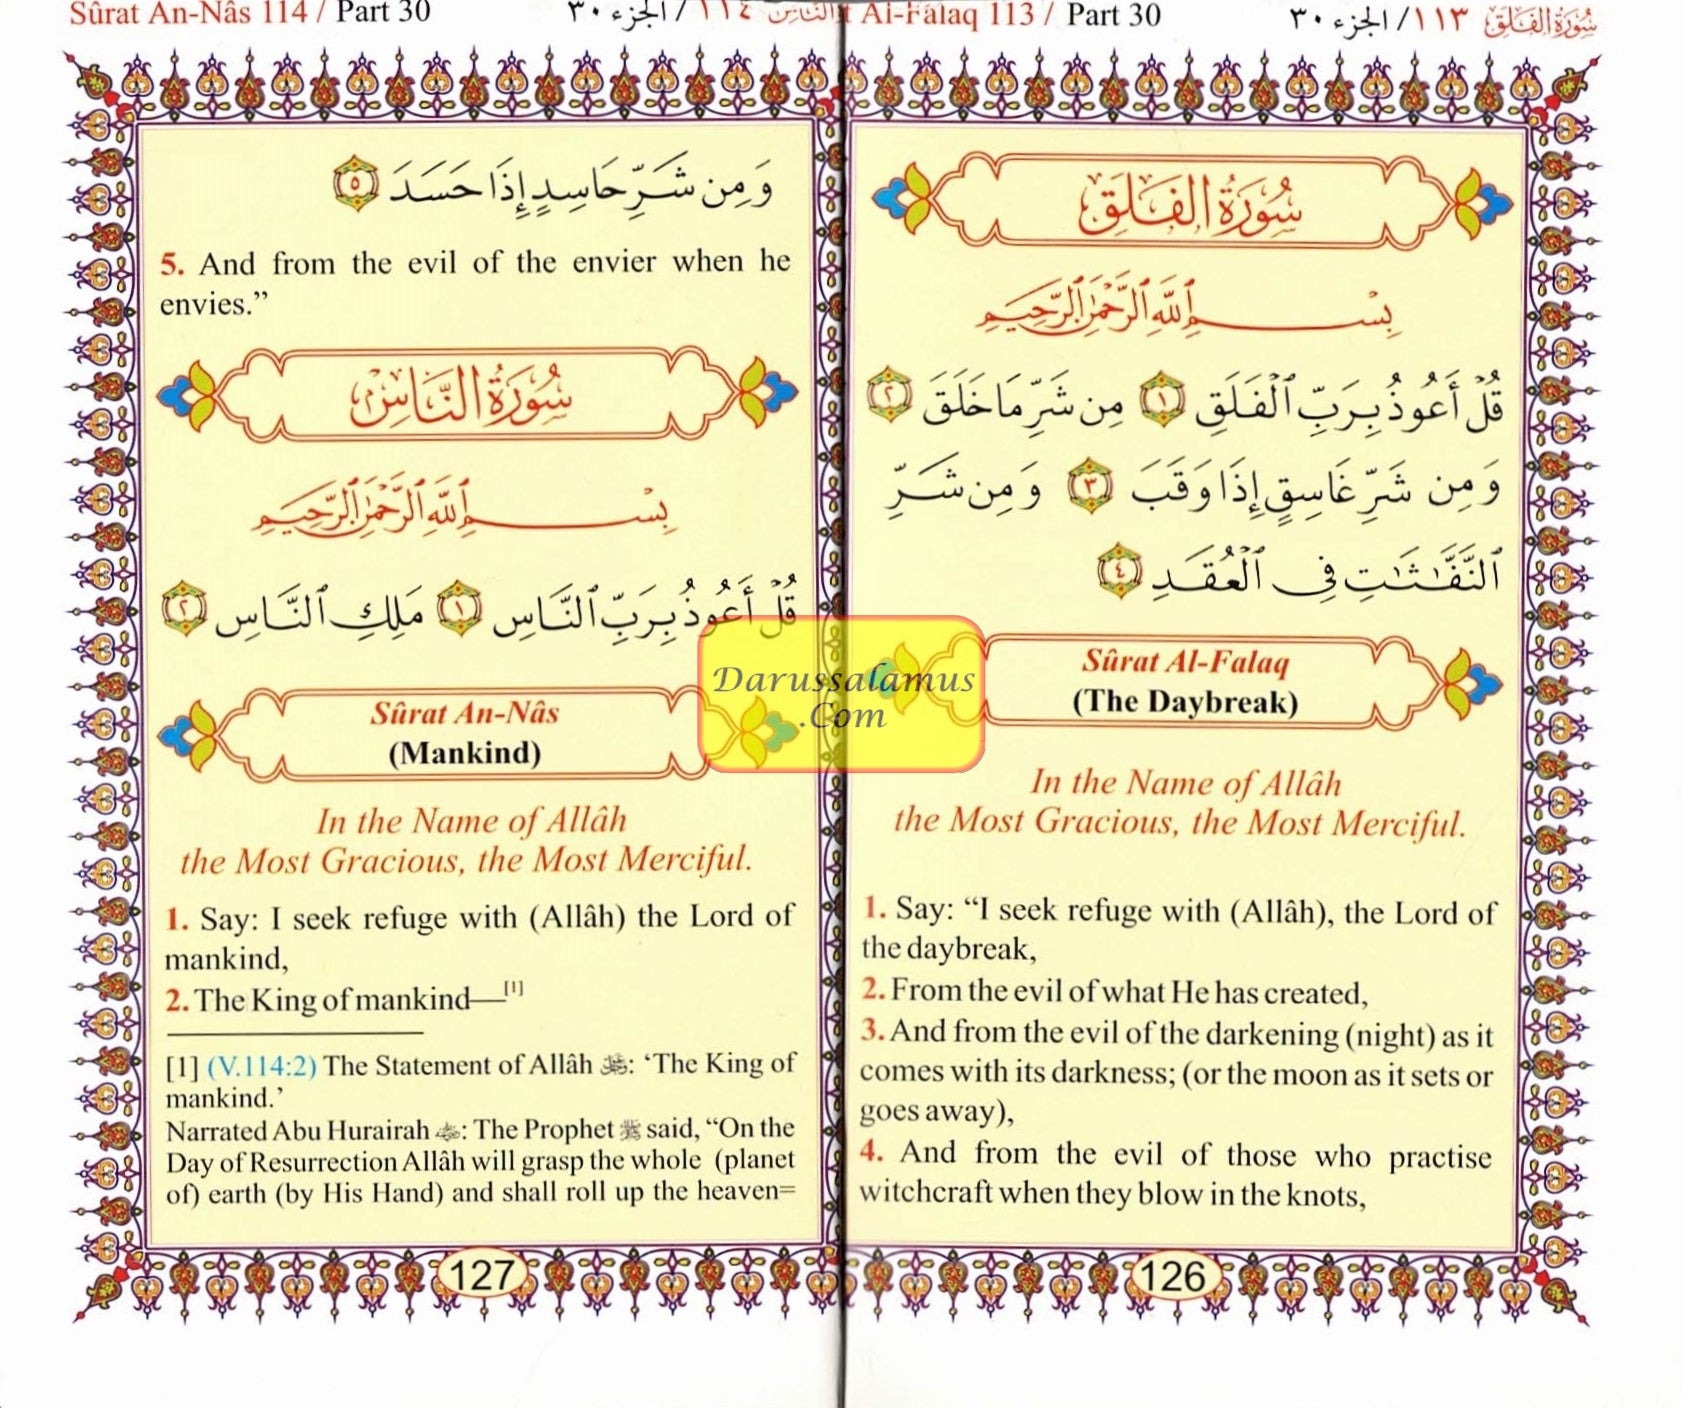 سُورَةُ الفَلَقِ ١١٣ / الجزء ٣٠
Al-Falaq 113 / Part 30
سُورَةُ الفَلَقِ
بِسْمِ ٱللَّهِ ٱلرَّحْمَٰنِ ٱلرَّحِيمِ
قُلْ أَعُوذُ بِرَبِّ ٱلْفَلَقِ ١ مِن شَرِّ مَا خَلَقَ ٢
وَمِن شَرِّ غَاسِقٍ إِذَا وَقَبَ ٣ وَمِن شَرِّ
ٱلنَّفَّٰثَٰتِ فِى ٱلْعُقَدِ ٤
Sûrat Al-Falaq
(The Daybreak)
In the Name of Allâh
the Most Gracious, the Most Merciful.
1. Say: “I seek refuge with (Allâh), the Lord of
the daybreak,
2. From the evil of what He has created,
3. And from the evil of the darkening (night) as it
comes with its darkness; (or the moon as it sets or
goes away),
4. And from the evil of those who practise
witchcraft when they blow in the knots,
126
النَّاسِ ١١٤ / الجزء ٣٠
Sûrat An-Nâs 114 / Part 30
وَمِن شَرِّ حَاسِدٍ إِذَا حَسَدَ ٥
5. And from the evil of the envier when he
envies.”
سُورَةُ النَّاسِ
بِسْمِ ٱللَّهِ ٱلرَّحْمَٰنِ ٱلرَّحِيمِ
قُلْ أَعُوذُ بِرَبِّ ٱلنَّاسِ ١ مَلِكِ ٱلنَّاسِ ٢
Sûrat An-Nâs
(Mankind)
In the Name of Allâh
the Most Gracious, the Most Merciful.
1. Say: I seek refuge with (Allâh) the Lord of
mankind,
2. The King of mankind—[1]
[1] (V.114:2) The Statement of Allâh ﷻ: ‘The King of
mankind.’
Narrated Abu Hurairah: The Prophet ﷺ said, “On the
Day of Resurrection Allâh will grasp the whole (planet
of) earth (by His Hand) and shall roll up the heaven=
127
Darussalamus
.Com